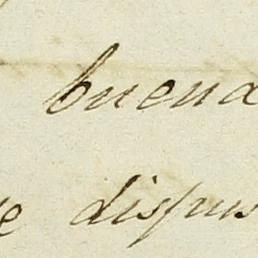 buena
e dispus